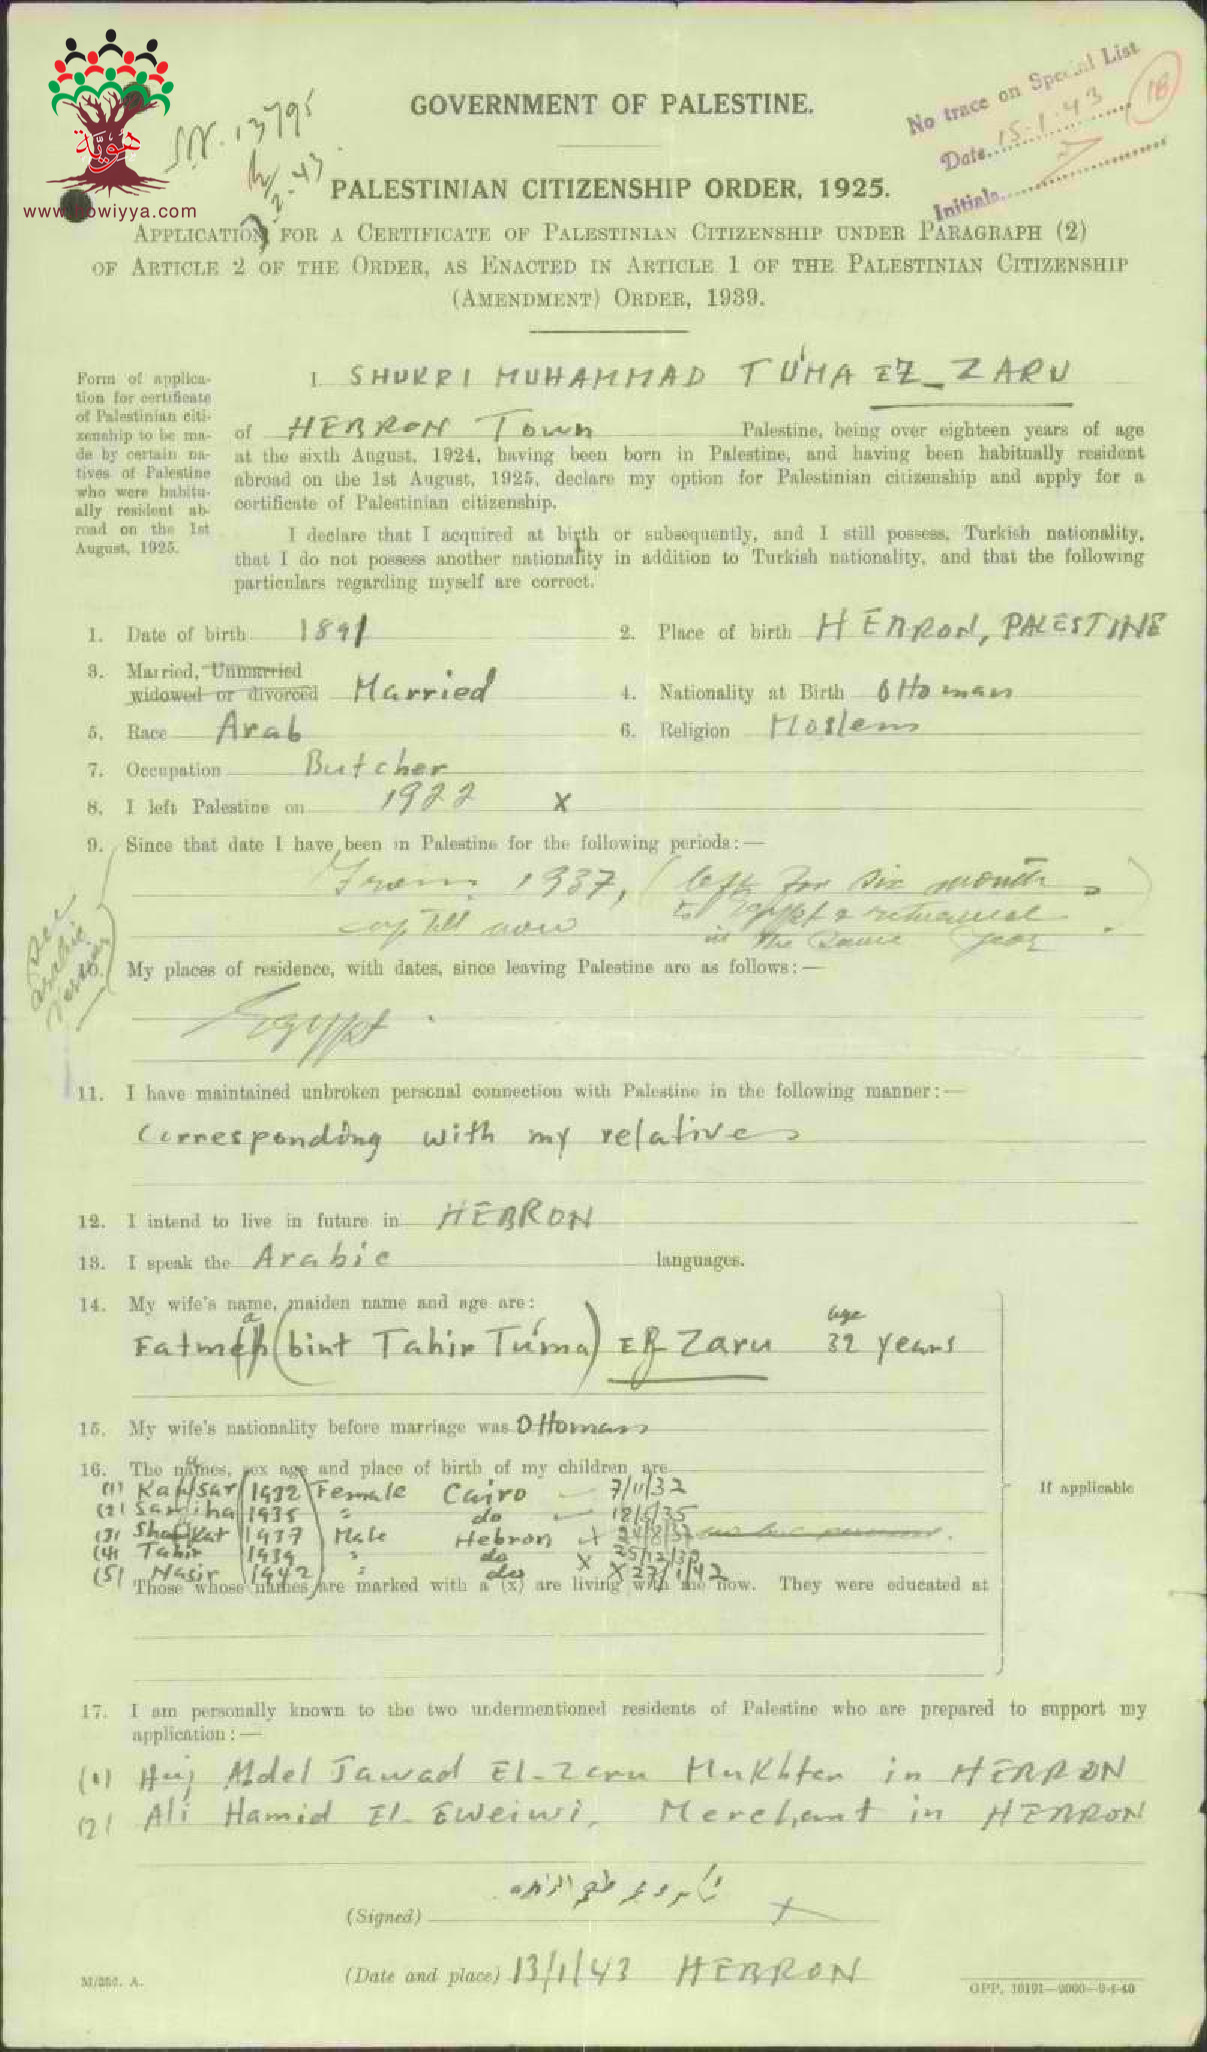 هوية
www.howiyya.com
GOVERNMENT OF PALESTINE.
No trace on Special List
Date 15.1.43
Initials
18
13795
2-43
PALESTINIAN CITIZENSHIP ORDER, 1925.
APPLICATION FOR A CERTIFICATE OF PALESTINIAN CITIZENSHIP UNDER PARAGRAPH (2)
OF ARTICLE 2 OF THE ORDER, AS ENACTED IN ARTICLE 1 OF THE PALESTINIAN CITIZENSHIP
(AMENDMENT) ORDER, 1939.
Form of applica-
tion for certificate
of Palestinian citi-
zenship to be ma-
de by certain na-
tives of Palestine
who were habitu-
ally resident ab-
road on the 1st
August, 1925.
I SHUKRI MUHAMMAD TU'MA EZ-ZARU
of HEBRON Town Palestine, being over eighteen years of age
at the sixth August, 1924, having been born in Palestine, and having been habitually resident
abroad on the 1st August, 1925, declare my option for Palestinian citizenship and apply for a
certificate of Palestinian citizenship.
I declare that I acquired at birth or subsequently, and I still possess, Turkish nationality,
that I do not possess another nationality in addition to Turkish nationality, and that the following
particulars regarding myself are correct.
1. Date of birth 1891 2. Place of birth HEBRON, PALESTINE
3. Married, Unmarried
widowed or divorced Married 4. Nationality at Birth Ottoman
5. Race Arab 6. Religion Moslem
7. Occupation Butcher
8. I left Palestine on 1922 X
9. Since that date I have been in Palestine for the following periods:—
From 1937, (left for six months
up till now to Egypt & returned
in the same year)
See arabic version
10. My places of residence, with dates, since leaving Palestine are as follows:—
Egypt.
11. I have maintained unbroken personal connection with Palestine in the following manner:—
Corresponding with my relatives
12. I intend to live in future in HEBRON
13. I speak the Arabic languages.
14. My wife's name, maiden name and age are:
age
Fatmeh (bint Tahir Tu'ma) Ez Zaru 32 years
15. My wife's nationality before marriage was Ottoman
16. The names, sex age and place of birth of my children are
(1) Kawsar 1932 Female Cairo 7/11/32
(2) Samiha 1935 " do 18/5/35
(3) Shafkat 1937 Male Hebron X 24/8/37
(4) Tahir 1939 " do X 25/12/39
(5) Nasir 1942 " do X 27/1/42
Those whose names are marked with a (x) are living with me now. They were educated at
If applicable
17. I am personally known to the two undermentioned residents of Palestine who are prepared to support my
application:—
(1) Haj Abdel Jawad El-Zaru Mukhtar in HEBRON
(2) Ali Hamid El-Eweiwi, Merchant in HEBRON
(Signed) X
(Date and place) 13/1/43 HEBRON
M/256. A.
GPP. 10191—2000—9-4-40